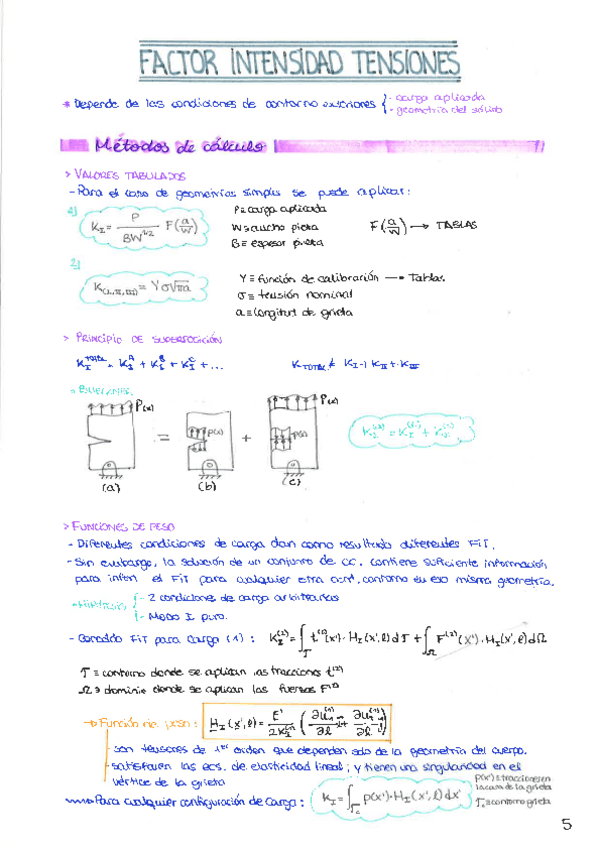 FACTOR INTENSIDAD TENSIONES
* Depende de las condiciones de contorno exteriores { - carga aplicada
- geometría del sólido
Métodos de cálculo
> VALORES TABULADOS
- Para el caso de geometrías simples se puede aplicar:
1) K_I = P / BW^1/2 F(a/W)
P ≡ carga aplicada
W ≡ ancho pieza
B ≡ espesor pieza
F(a/W) → TABLAS
2) K(I,II,III) = Yσ√πa
Y ≡ función de calibración → Tablas
σ ≡ tensión nominal
a ≡ longitud de grieta
> PRINCIPIO DE SUPERPOSICIÓN
K_I^TOTAL = K_I^A + K_I^B + K_I^C + ...
K_TOTAL ≠ K_I + K_II + K_III
P(x)
P(x)
= p(x) + p(x)
K_I^(a) = K_I^(b) + K_I^(c)
(a) (b) (c)
> FUNCIONES DE PESO
- Diferentes condiciones de carga dan como resultado diferentes FIT.
- Sin embargo, la solución de un conjunto de CC. contiene suficiente información
para inferir el FIT para cualquier otra cond. contorno en eso misma geometría.
{ - 2 condiciones de carga arbitrarias
- Modo I puro.
- Conocido FIT para carga (1) : K_I^(2) = ∫_Γ t^(2)(x')·H_I(x',l)dΓ + ∫_Ω F^(2)(x')·H_I(x',l)dΩ
Γ ≡ contorno donde se aplican las tracciones t^(2)
Ω ≡ dominio donde se aplican las fuerzas F^(2)
→ Función de peso : H_I(x',l) = E' / 2K_I^(1)
- son tensores de 1er orden que dependen solo de la geometría del cuerpo.
- satisfacen las ecs. de elasticidad lineal; y tienen una singularidad en el
vértice de la grieta
Para cualquier configuración de Carga : K_I = ∫_Γc p(x')·H_I(x',l)dx'
p(x') ≡ tracciones en
la cara de la grieta
Γc ≡ contorno grieta
5